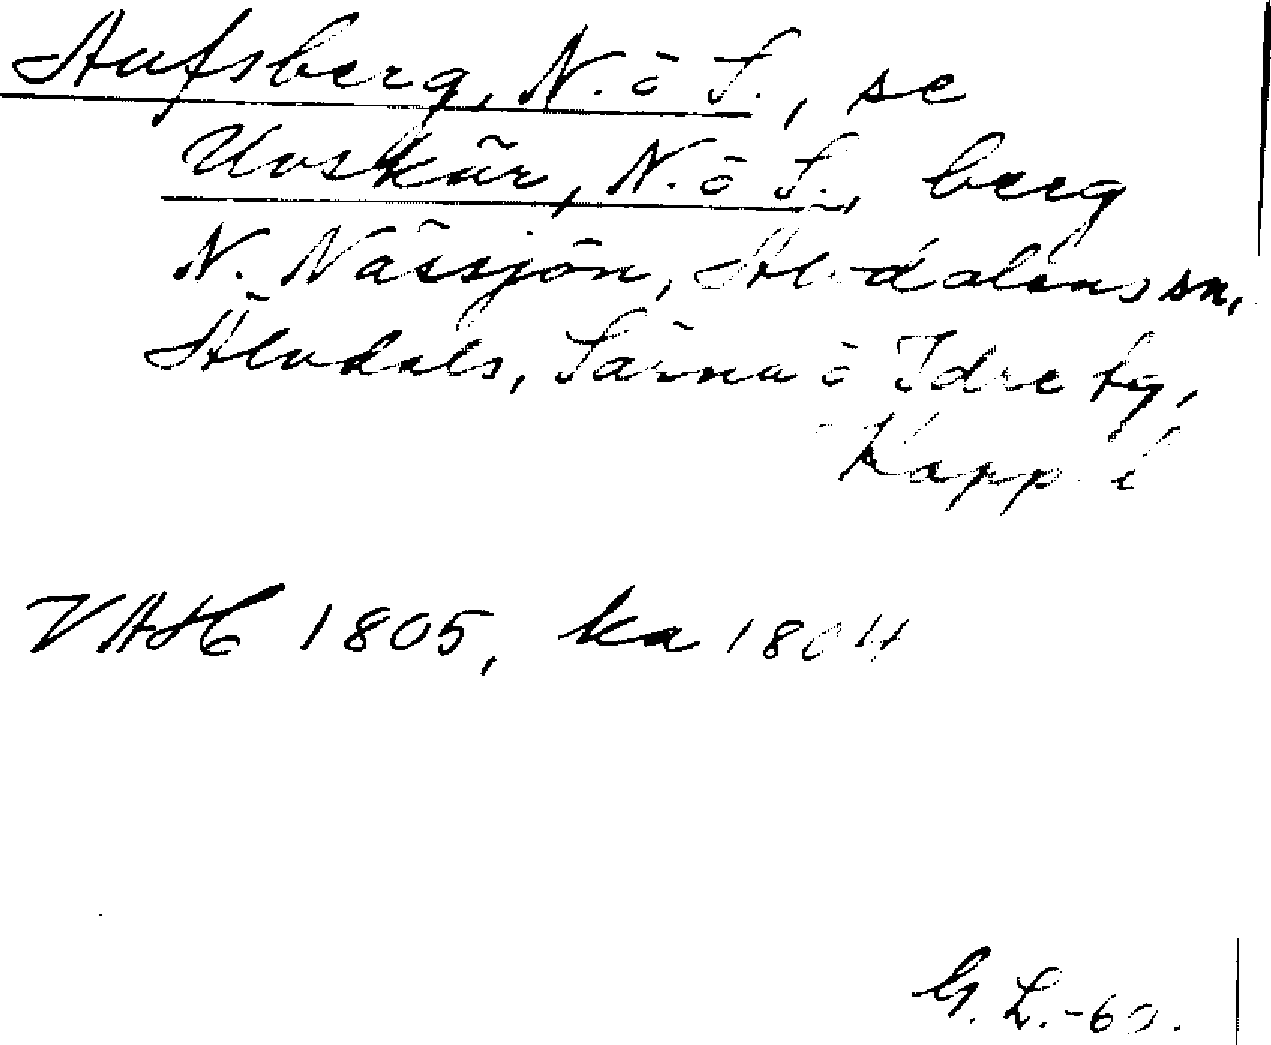 Aufsberg, N. o S., se
Uvskär, N. o S., berg
N. Nässjön, Älvdalens sn,
Älvdals, Särna o Idre tg,
Kopp. l
VAH 1805, ka 1804
G. L. -60.